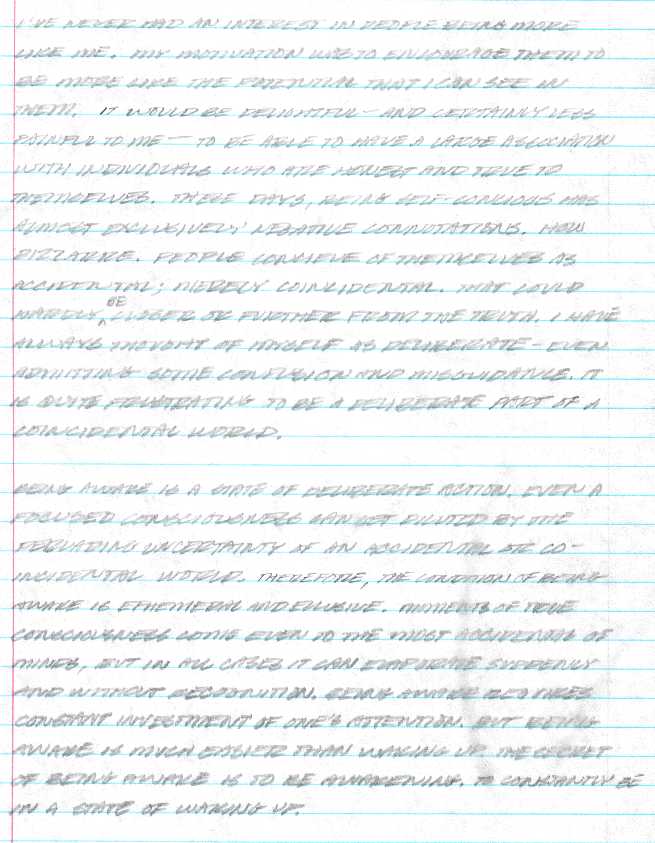 I'VE NEVER HAD AN INTEREST IN PEOPLE BEING MORE
LIKE ME. MY MOTIVATION WAS TO ENCOURAGE THEM TO
BE MORE LIKE THE POTENTIAL THAT I CAN SEE IN
THEM. IT WOULD BE DELIGHTFUL — AND CERTAINLY LESS
PAINFUL TO ME — TO BE ABLE TO HAVE A LARGE ASSOCIATION
WITH INDIVIDUALS WHO ARE HONEST AND TRUE TO
THEMSELVES. THESE DAYS, BEING SELF-CONCIOUS HAS
ALMOST EXCLUSIVELY NEGATIVE CONNOTATIONS. HOW
BIZZARRE. PEOPLE CONCIEVE OF THEMSELVES AS
ACCIDENTAL; MERELY COINCIDENTAL. THAT COULD
HARDLY BE CLOSER OR FURTHER FROM THE TRUTH. I HAVE
ALWAYS THOUGHT OF MYSELF AS DELIBERATE – EVEN
ADMITTING SOME CONFUSION AND MISGUIDANCE. IT
IS QUITE FRUSTRATING TO BE A DELIBERATE PART OF A
COINCIDENTAL WORLD.
BEING AWAKE IS A STATE OF DELIBERATE ACTION. EVEN A
FOCUSED CONSCIOUSNESS CAN GET DILUTED BY THE
PERVADING UNCERTAINTY OF AN ACCIDENTAL OR CO-
INCIDENTAL WORLD. THEREFORE, THE CONDITION OF BEING
AWAKE IS EPHEMERAL AND ELLUSIVE. MOMENTS OF TRUE
CONSCIOUSNESS COME EVEN TO THE MOST ACCIDENTAL OF
MINDS, BUT IN ALL CASES IT CAN EVAPORATE SUDDENLY
AND WITHOUT RECOGNITION. BEING AWAKE REQUIRES
CONSTANT INVESTMENT OF ONE'S ATTENTION. BUT BEING
AWAKE IS MUCH EASIER THAN WAKING UP. THE SECRET
OF BEING AWAKE IS TO BE AWAKENING. TO CONSTANTLY BE
IN A STATE OF WAKING UP.